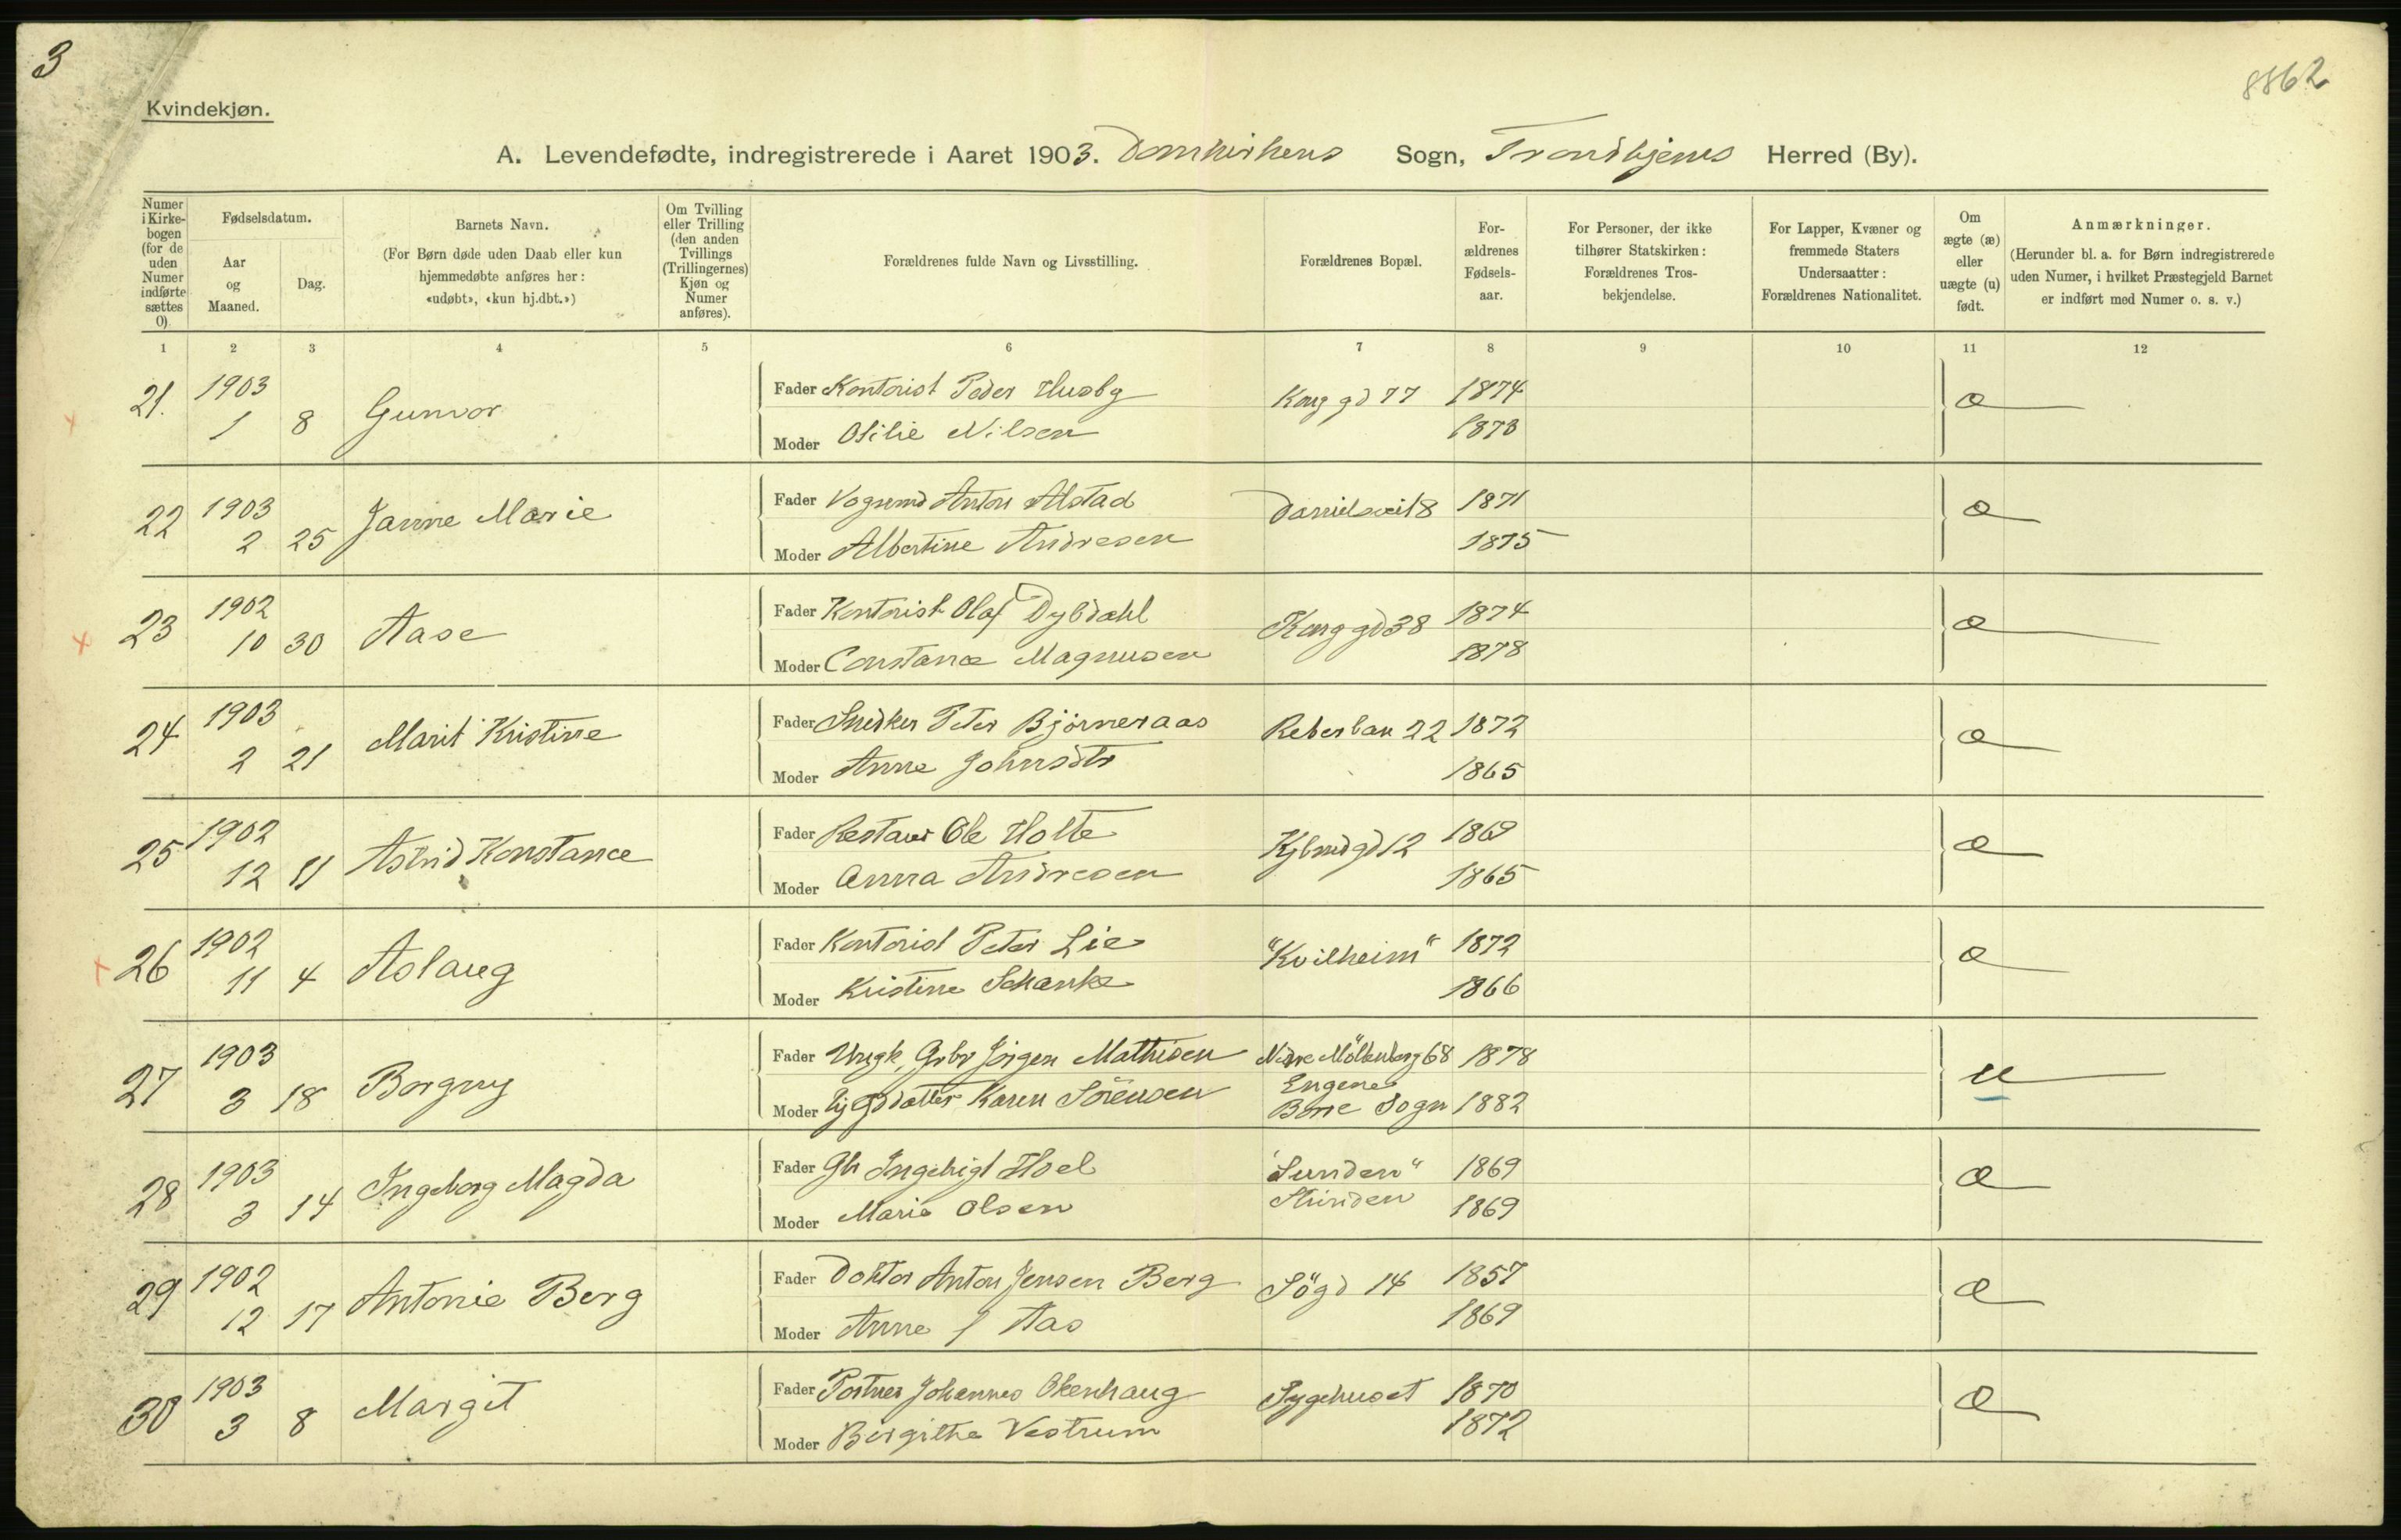 3
8862
Kvindekjøn.
A. Levendefødte, indregistrerede i Aaret 1903. Domkirkens Sogn, Trondhjems Herred (By).
Numer i Kirkebogen (for de uden Numer indførte sættes 0).
Fødselsdatum.
Aar og Maaned.
Dag.
Barnets Navn.
(For Børn døde uden Daab eller kun hjemmedøbte anføres her: «udøbt», «kun hj.dbt.»)
Om Tvilling eller Trilling (den anden Tvillings (Trillingernes) Kjøn og Numer anføres).
Forældrenes fulde Navn og Livsstilling.
Forældrenes Bopæl.
Forældrenes Fødselsaar.
For Personer, der ikke tilhører Statskirken: Forældrenes Trosbekjendelse.
For Lapper, Kvæner og fremmede Staters Undersaatter: Forældrenes Nationalitet.
Om ægte (æ) eller uægte (u) født.
Anmærkninger.
(Herunder bl. a. for Børn indregistrerede uden Numer, i hvilket Præstegjeld Barnet er indført med Numer o. s. v.)
1 2 3 4 5 6 7 8 9 10 11 12
21. 1903 1 8 Gunvor
Fader Kontorist Peder Husby Kong gd 77 1874 æ
Moder Otilie Nilsen 1873
22 1903 2 25 Janne Marie
Fader Vognmd Anton Alstad Danielsveit 8 1871 æ
Moder Albertine Andresen 1875
23 1902 10 30 Aase
Fader Kontorist Olaf Dybdahl Kong gd 38 1874 æ
Moder Constance Magnusen 1878
24 1903 2 21 Marit Kristine
Fader Snedker Peter Bjørneraas Reberban 22 1872 æ
Moder Anne Johnsdtr 1865
25 1902 12 11 Astrid Konstance
Fader Restaur Ole Holte Kjbmdgd 12 1869 æ
Moder Anna Andresen 1865
26 1902 11 4 Aslaug
Fader Kontorist Peter Lie "Kvilheim" 1872 æ
Moder Kristine Schanke 1866
27 1903 3 18 Borgny
Fader Ungk, Grbr Jörgen Mathisen Nedre Möllenberg 68 1878 u
Moder Karen Sörensen Engenes Borre Sogn 1882
28 1903 3 14 Ingeborg Magda
Fader Gb Ingebrigt Hoel "Lunden" 1869 æ
Moder Marie Olsen Strinden 1869
29 1902 12 17 Antonie Berg
Fader Doktor Anton Jensen Berg Sögd 14 1857 æ
Moder Anne f Aas 1869
30 1903 3 8 Margit
Fader Portner Johannes Okenhaug Sygehuset 1870 æ
Moder Birgitha Vestrum 1872